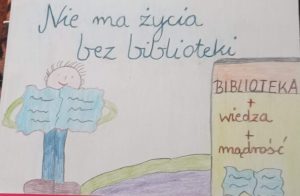 Nie ma życia
bez biblioteki
BIBLIOTEKA
+
wiedza
+
mądrość